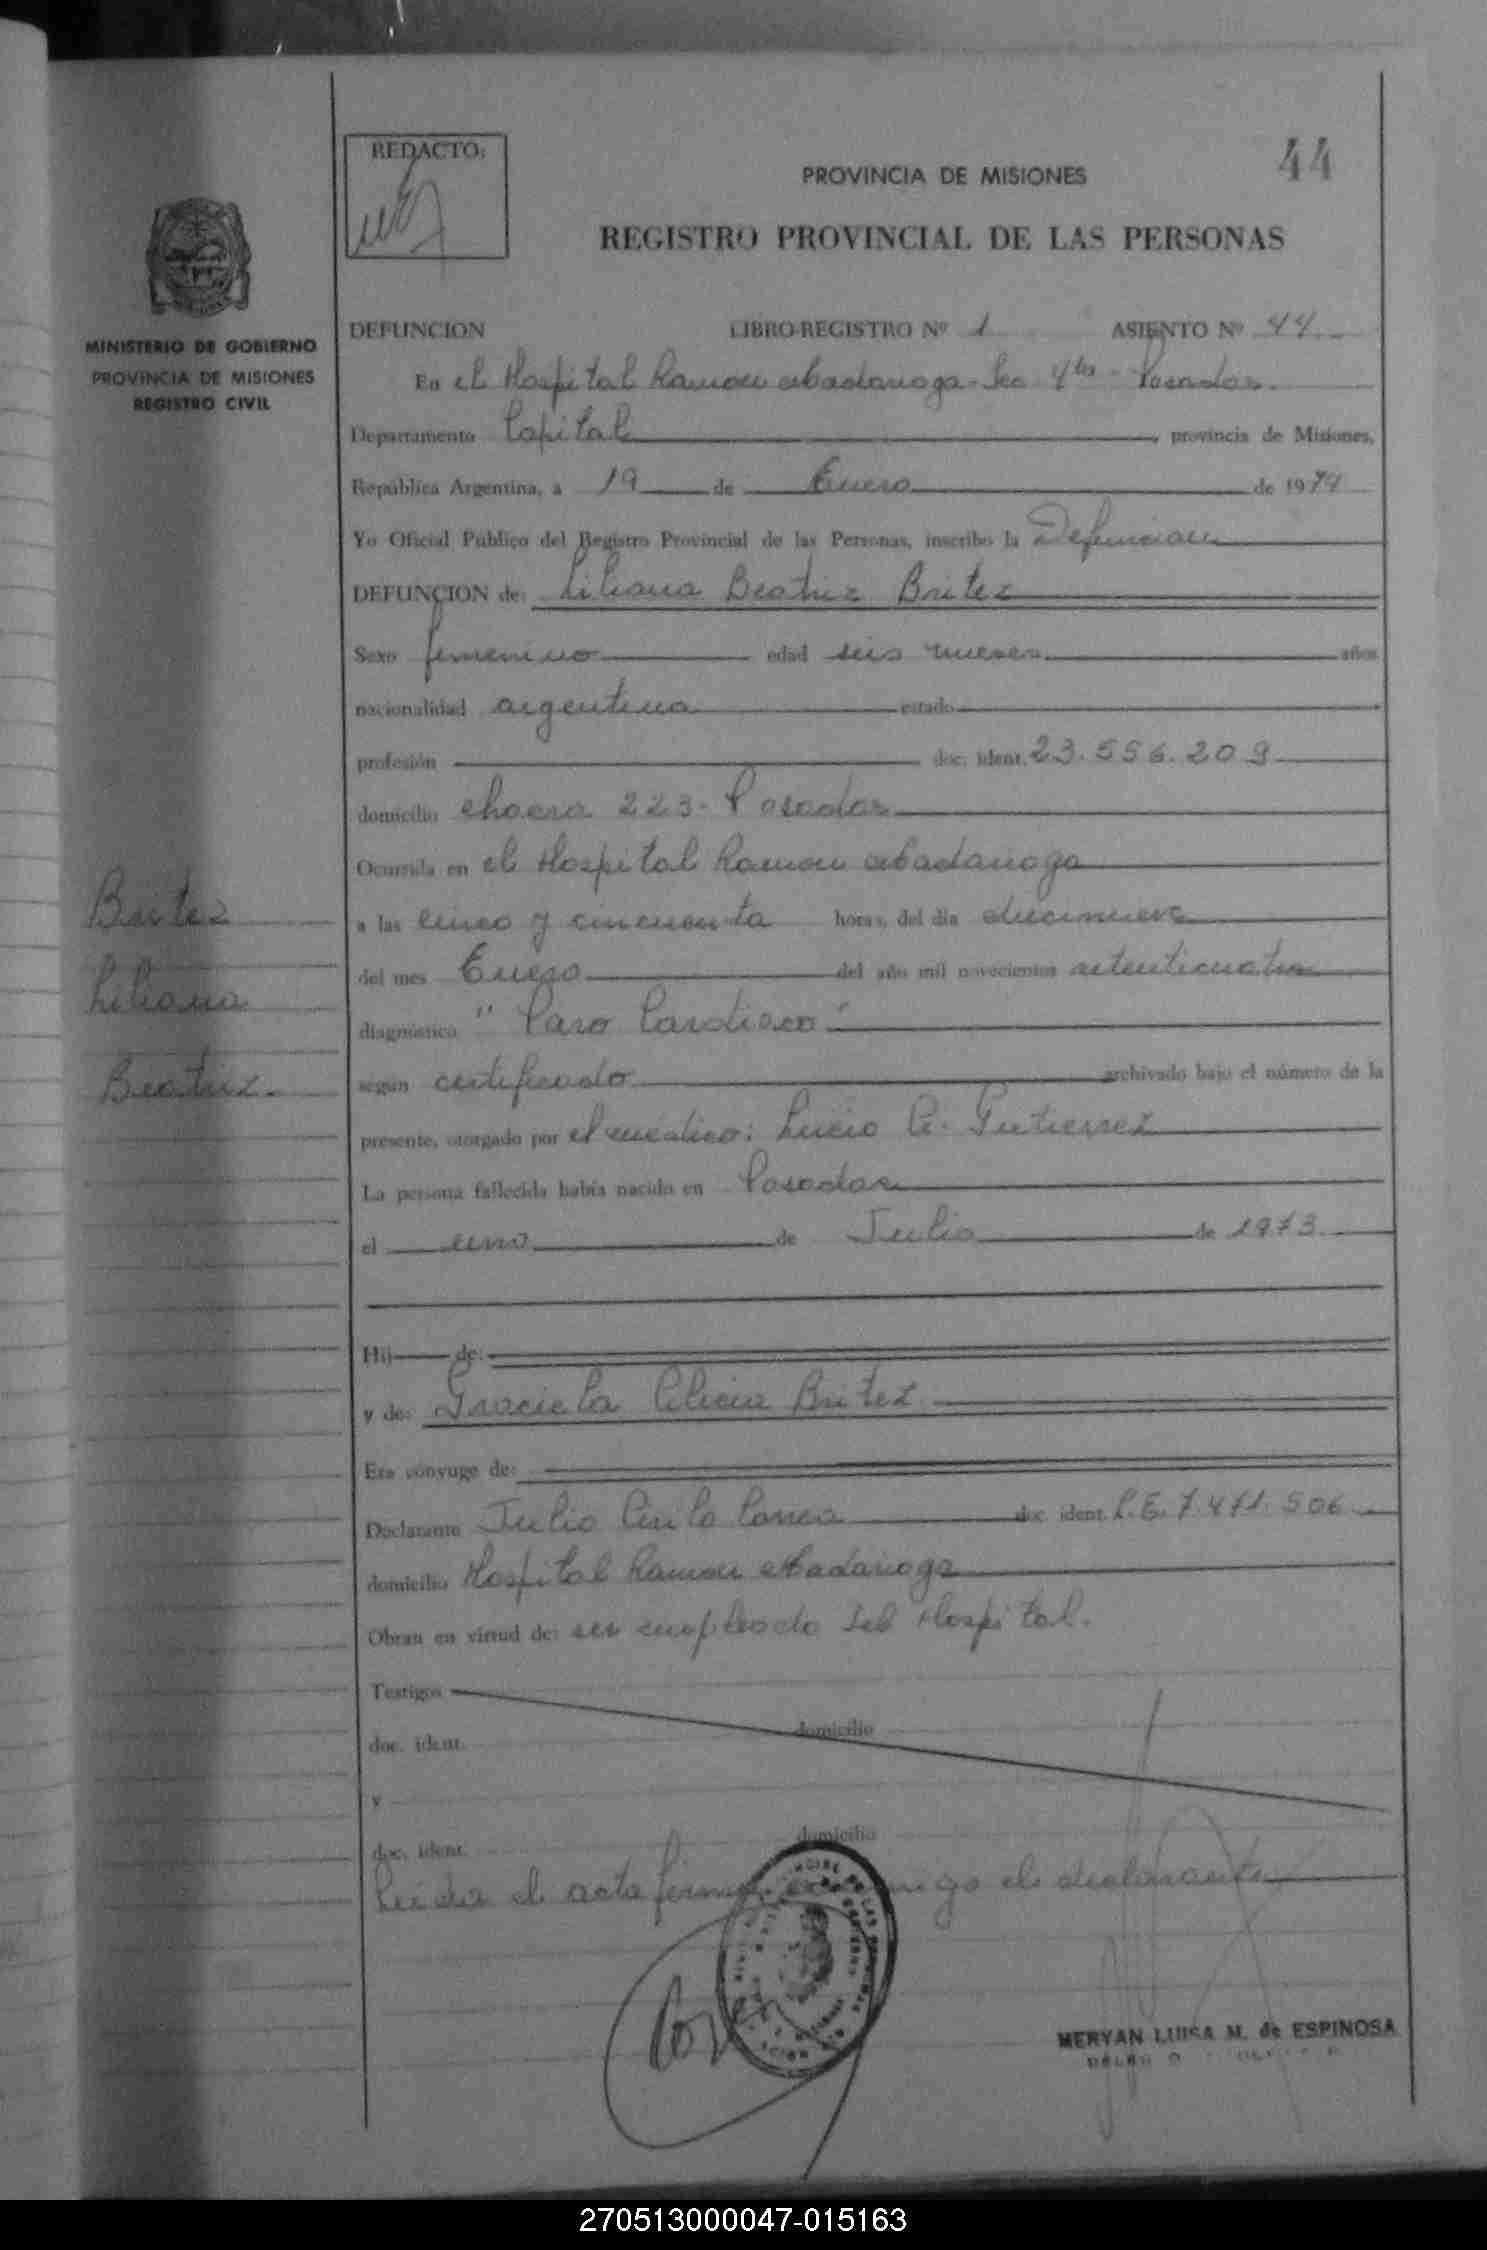 REDACTO:
44
PROVINCIA DE MISIONES
REGISTRO PROVINCIAL DE LAS PERSONAS
MINISTERIO DE GOBIERNO
PROVINCIA DE MISIONES
REGISTRO CIVIL
DEFUNCION LIBRO-REGISTRO Nº 1 ASIENTO Nº 44
En el Hospital Ramon Madariaga - Sec 4ta - Posadas.
Departamento Capital, provincia de Misiones,
República Argentina, a 19 de Enero de 1974
Yo Oficial Público del Registro Provincial de las Personas, inscribo la Defuncion
DEFUNCION de: Liliana Beatriz Britez
Sexo femenino edad seis meses años
nacionalidad argentina estado
profesión doc. ident. 23.556.209
domicilio chacra 223 - Posadas
Ocurrida en el Hospital Ramon Madariaga
a las cinco y cincuenta horas, del día diecinueve
del mes Enero del año mil novecientos setenticuatro
diagnóstico "Paro Cardiaco"
según certificado archivado bajo el número de la
presente, otorgado por el medico: Lucio A. Gutierrez
La persona fallecida había nacido en Posadas
el uno de Julio de 1973
Hij de:
y de: Graciela Alicia Britez
Era cónyuge de:
Declarante Julio Cirilo doc. ident. L.E. 7.471.506
domicilio Hospital Ramon Madariaga
Obran en virtud de: ser empleado del Hospital.
Testigos
doc. ident. domicilio
y
doc. ident. domicilio
Leída el acta el declarante
Britez
Liliana
Beatriz.
MERYAN LUISA M. de ESPINOSA
270513000047-015163